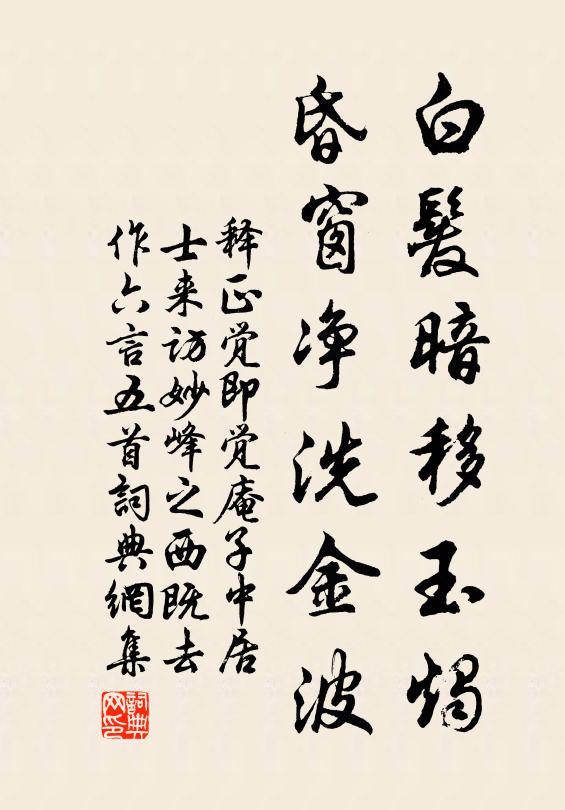 白髮暗移玉燭
昏窗净洗金波
释正觉即觉庵子中居
士来访妙峰之西既去
作六言五首詞典網集
詞典
网印